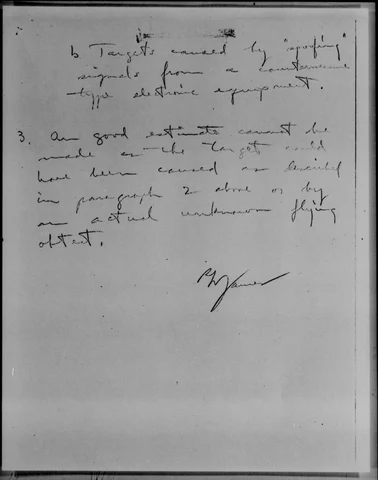 b Targets caused by "spoofing"
signals from a countermeasure
type electronic equipment.
3. An good estimate cannot be
made as the target could
have been caused as described
in paragraph 2 above or by
an actual unknown flying
object.